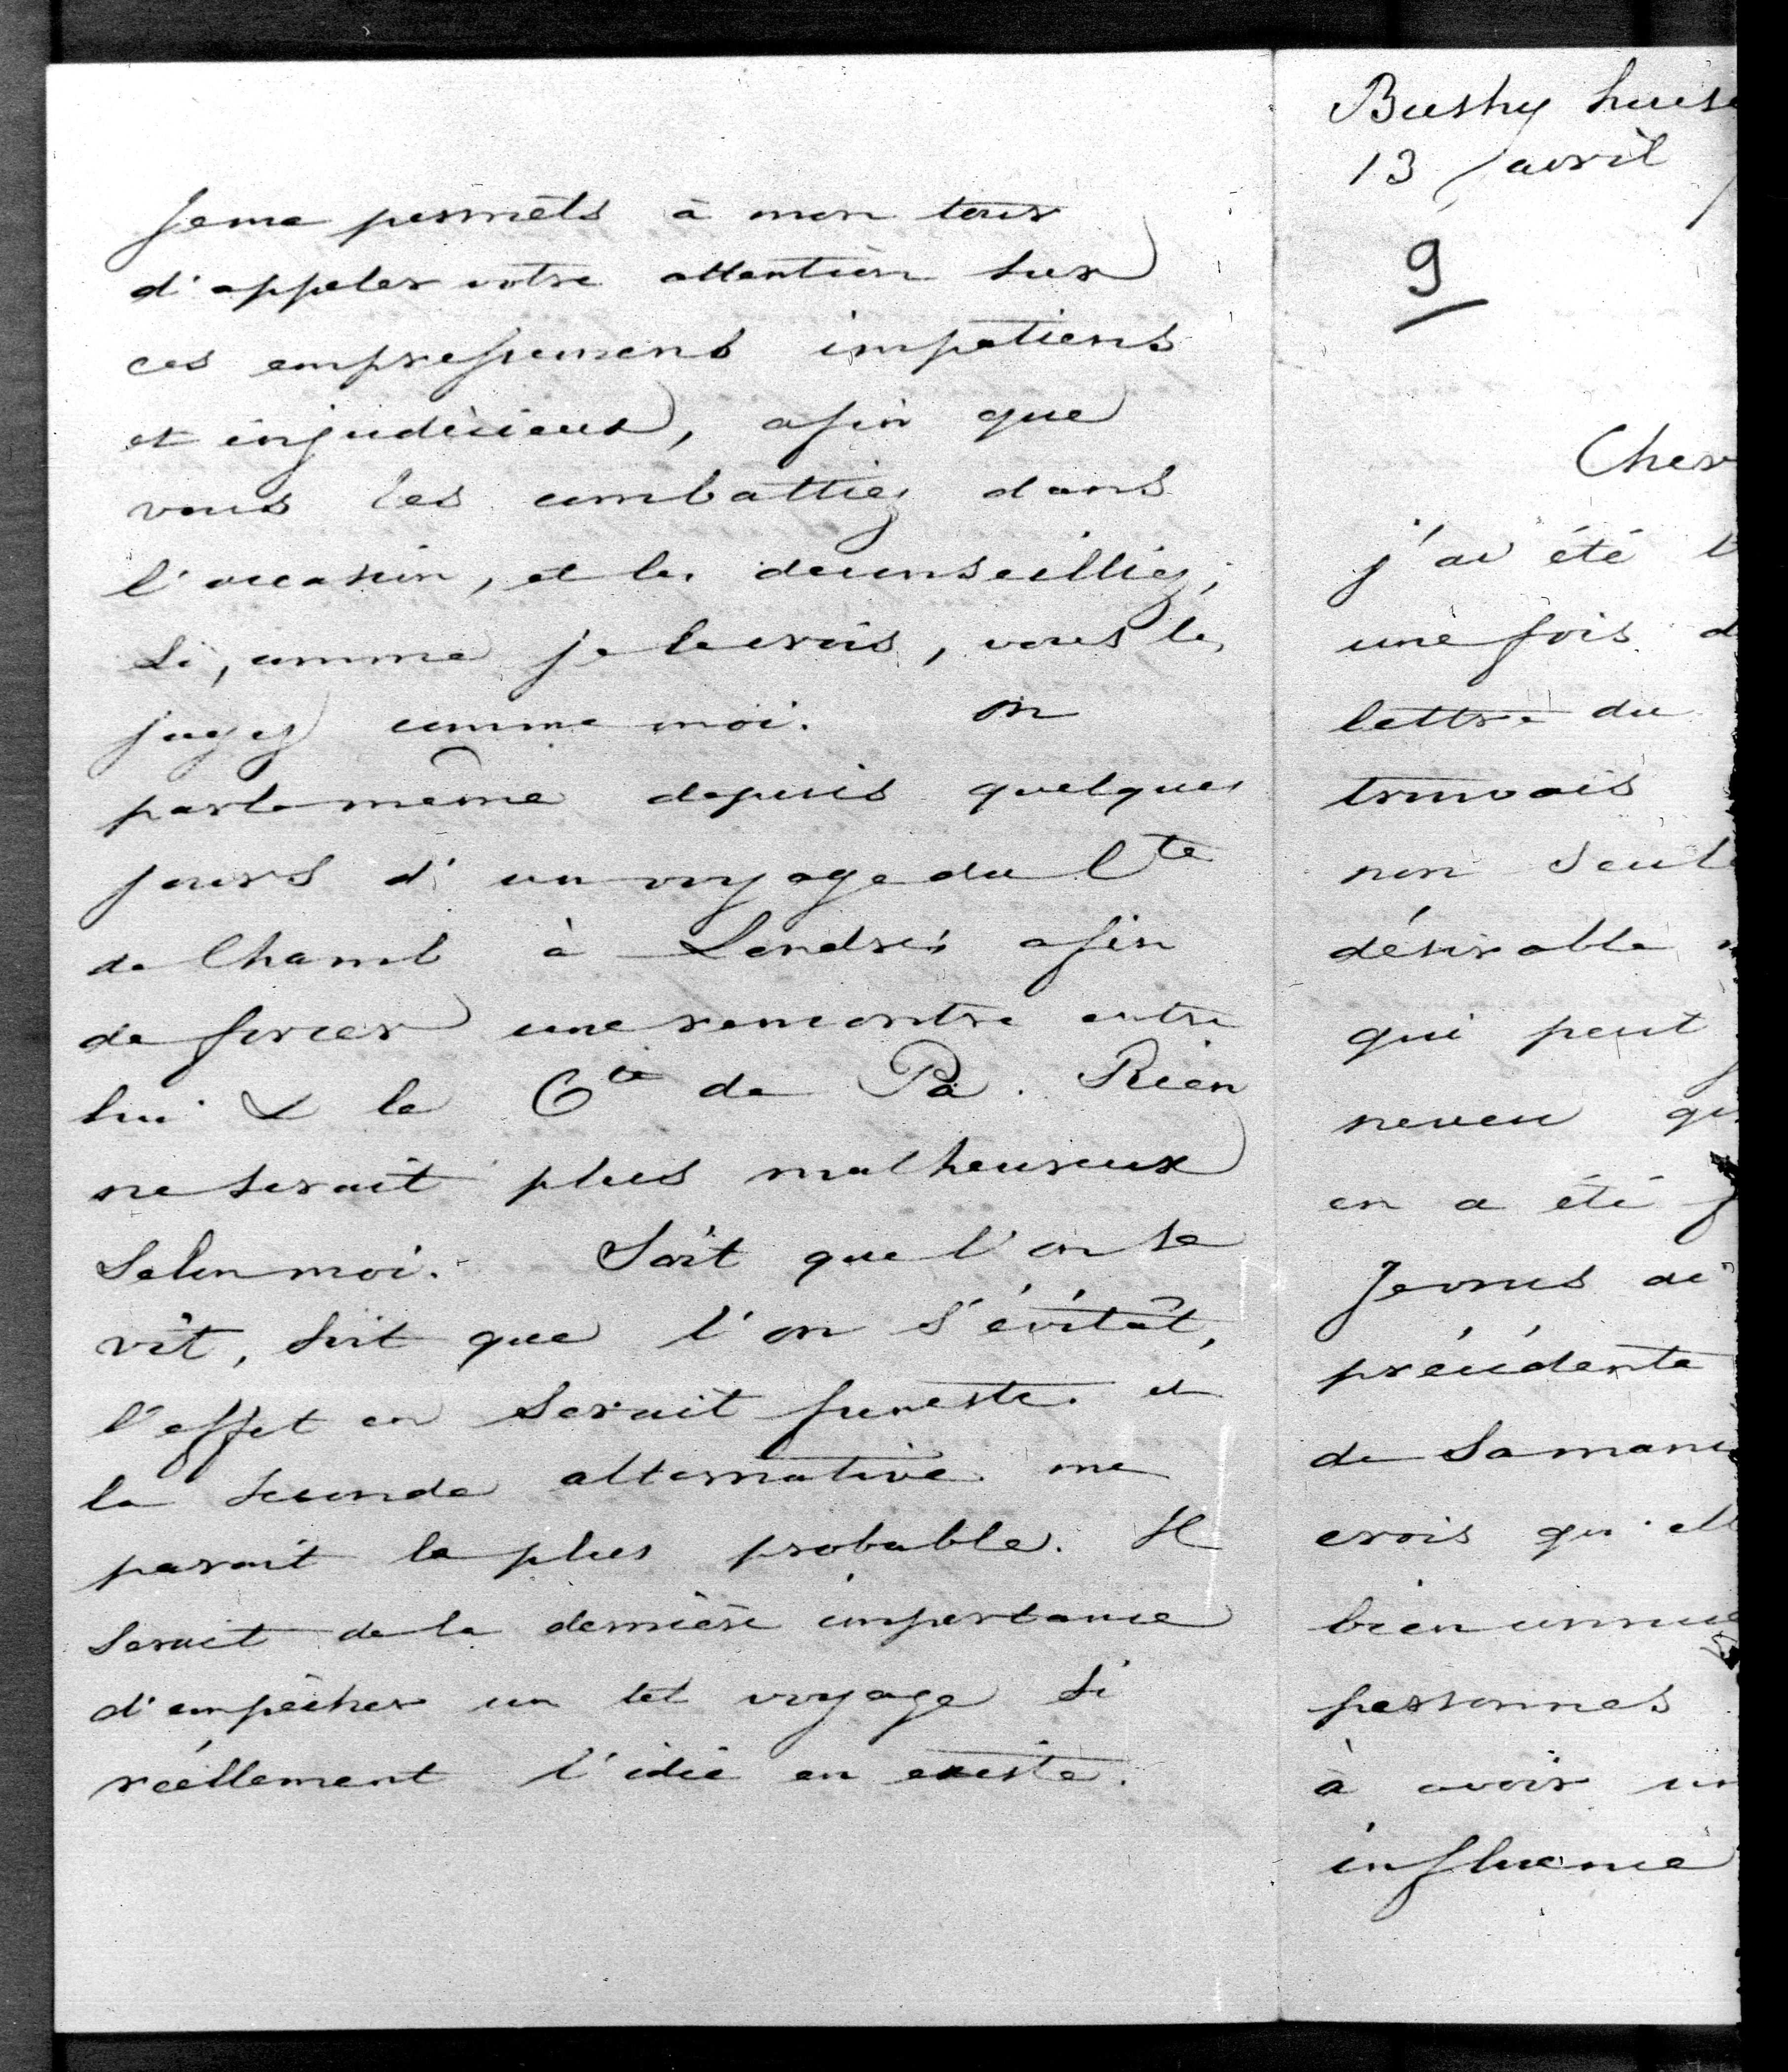 Je me permets à mon tour
d'appeler votre attention sur
ces empressemens impatiens
et injudicieux, afin que
vous les combattiez dans
l'occasion, et les déconseilliez,
si, comme je le crois, vous les
jugez comme moi. On
parle même depuis quelques
jours d'un voyage du Cte
de Chamb à Londres afin
de forcer une rencontre entre
lui & le Cte de Pa. Rien
ne serait plus malheureux
selon moi. Soit que l'on se
vît, soit que l'on s'évitât,
l'effet en serait funeste. et
la seconde alternative me
parait la plus probable. Il
serait de la dernière importance
d'empêcher un tel voyage si
réellement l'idée en existe.
Bushy house
13 avril
9
Cher
j'ai été
une fois d
lettre du
trouvais
non seul
désirable
qui peut
neveu qu
en a été
Je vous ai
précédente
de Sa mani
crois qu'ell
bien connue
personnes
à avoir un
influence